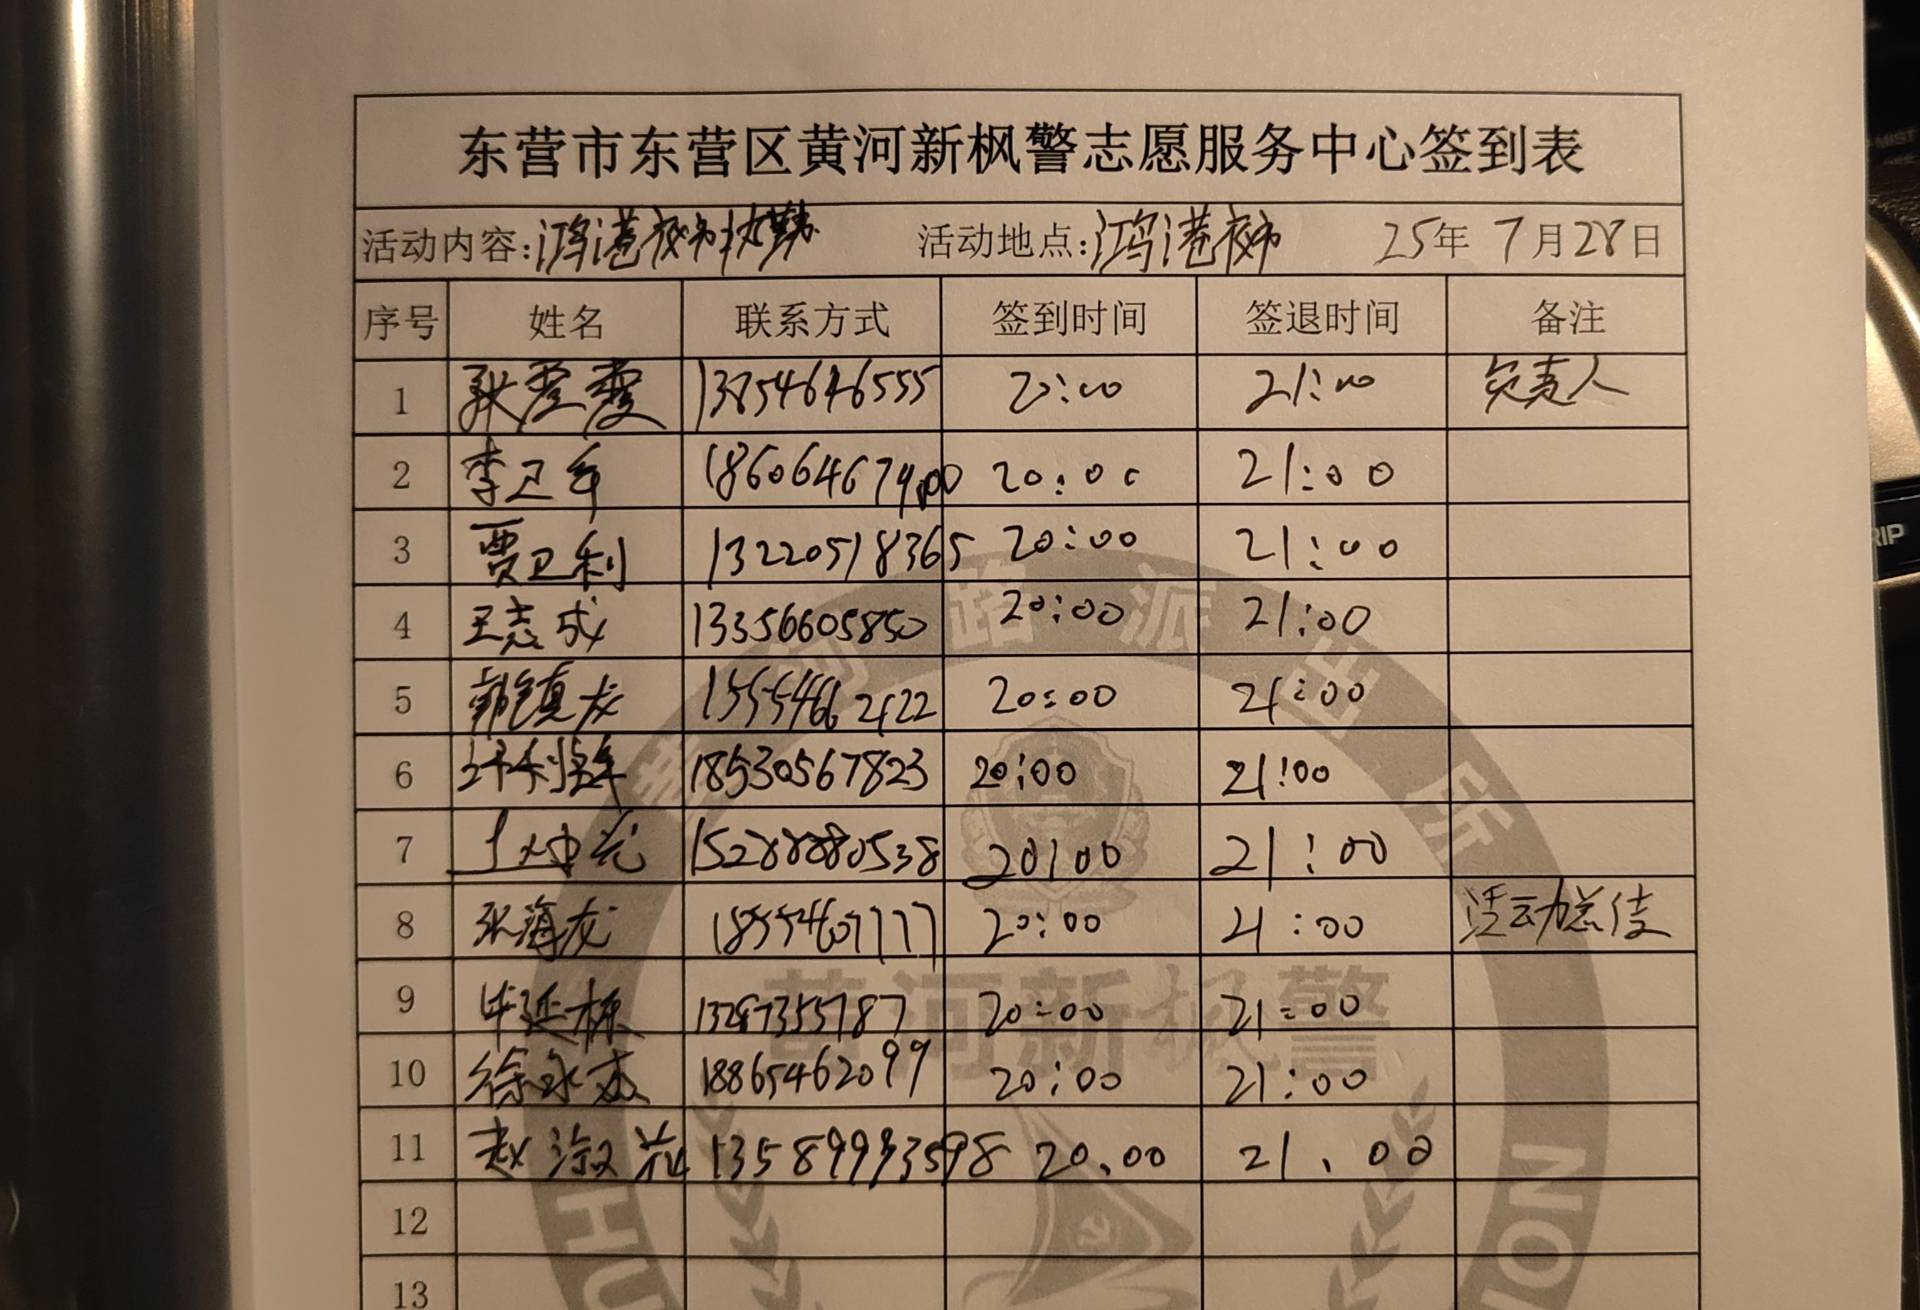 东营市东营区黄河新枫警志愿服务中心签到表
活动内容:鸿港夜市执勤 活动地点:鸿港夜市 25年 7月28日
序号 姓名 联系方式 签到时间 签退时间 备注
1 13854646555 20:00 21:00 负责人
2 李卫军 20:00 21:00
3 贾卫利 13220518365 20:00 21:00
4 王志成 13356605850 20:00 21:00
5 郭镇龙 20:00 21:00
6 18530567823 20:00 21:00
7 20:00 21:00
8 张海龙 18554607777 20:00 21:00 活动总结
9 毕延栋 20:00 21:00
10 徐永 18865462099 20:00 21:00
11 赵淑花 20.00 21.00
12
13
黄河路派出所
黄河新枫警
HU
ION
RIP
MIST